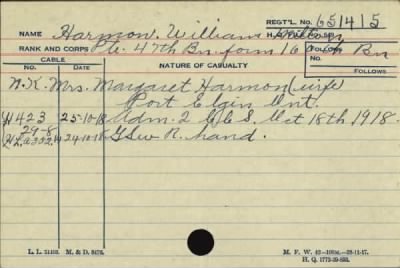 REGT'L. NO. 651415
NAME Harmon. William
RANK AND CORPS Pte. 47th Bn. form 160th Bn
FOLLOWS
CABLE
NO. DATE
NATURE OF CASUALTY
FOLLOWS
N.K. Mrs. Margaret Harmon (wife)
Port Elgin Ont.
H423 25-10-18 Adm. 2 C.C.S. Oct 18th 1918.
29-8 24-10-18 GSW R. hand.
L. L. M. & D.
M. F. W. 42-100M.-28-11-17.
H. Q. 1772-39-893.